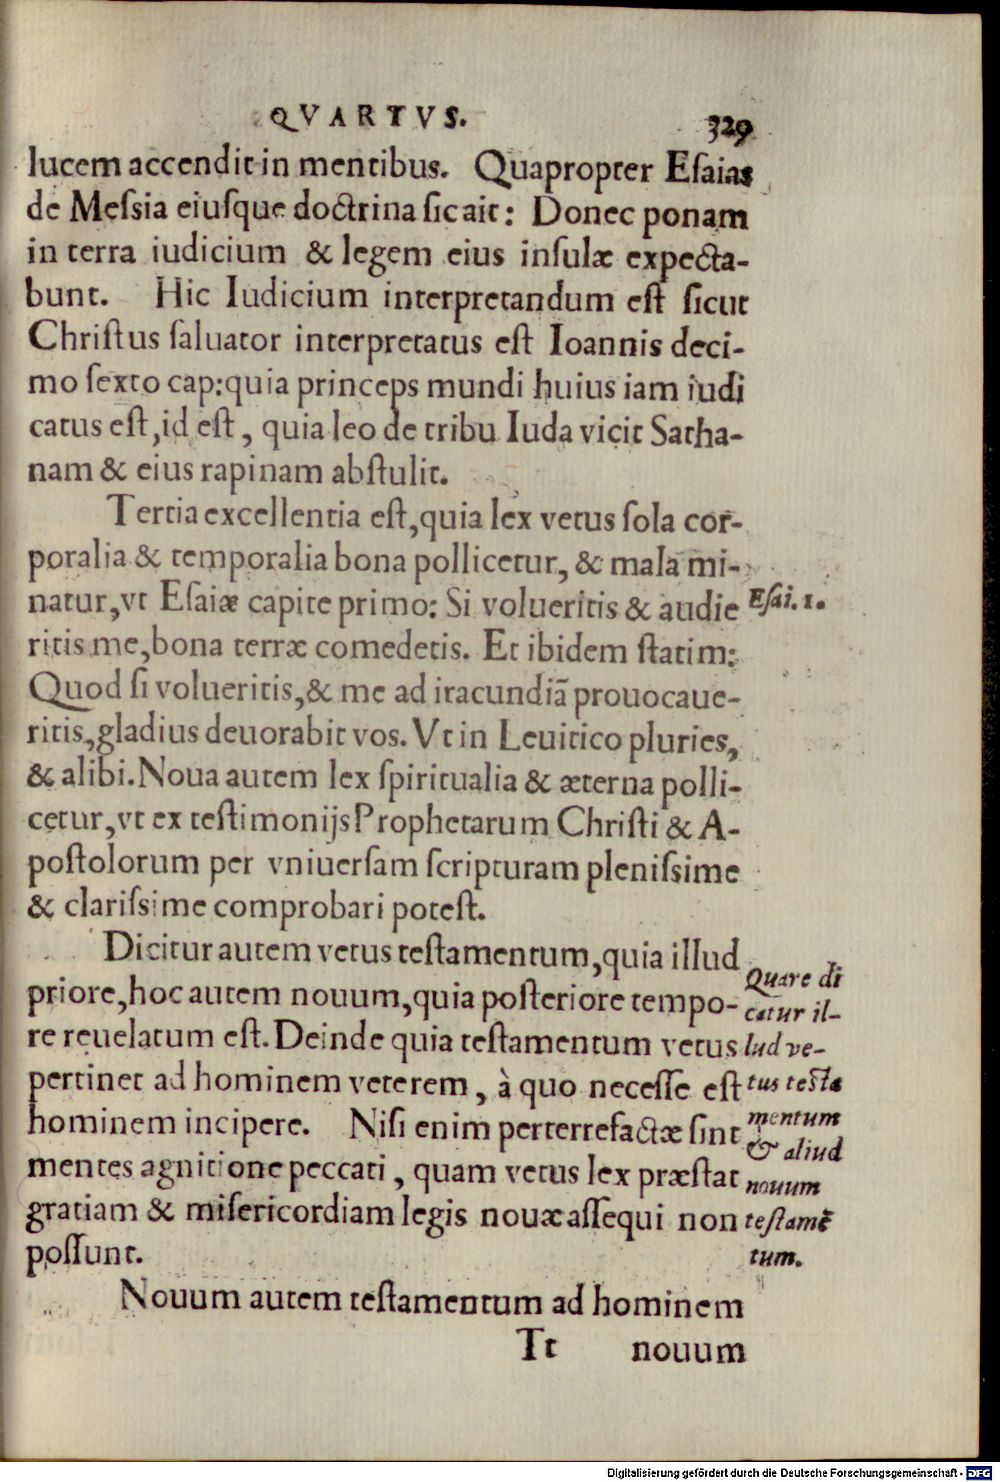 QVARTVS. 329
lucem accendit in mentibus. Quapropter Eſaias
de Meſsia eiuſque doctrina ſic ait: Donec ponam
in terra iudicium & legem eius inſulæ expecta-
bunt. Hic Iudicium interpretandum eſt ſicut
Chriſtus ſaluator interpretatus eſt Ioannis deci-
mo ſexto cap:quia princeps mundi huius iam iudi
catus eſt,id eſt, quia leo de tribu Iuda vicit Satha-
nam & eius rapinam abſtulit.
Tertia excellentia eſt,quia lex vetus ſola cor-
poralia & temporalia bona pollicetur, & mala mi-
natur,vt Eſaiæ capite primo: Si volueritis & audie
Eſai. 1.
ritis me,bona terræ comedetis. Et ibidem ſtatim:
Quod ſi volueritis,& me ad iracundiã prouocaue-
ritis,gladius deuorabit vos. Vt in Leuitico pluries,
& alibi. Noua autem lex ſpiritualia & æterna polli-
cetur,vt ex teſtimonijs Prophetarum Chriſti & A-
poſtolorum per vniuerſam ſcripturam pleniſsime
& clariſsime comprobari poteſt.
Dicitur autem vetus teſtamentum,quia illud
priore,hoc autem nouum,quia poſteriore tempo-
re reuelatum eſt. Deinde quia teſtamentum vetus
pertinet ad hominem veterem, à quo neceſſe eſt
hominem incipere. Niſi enim perterrefactæ ſint
mentes agnitione peccati, quam vetus lex præſtat
gratiam & miſericordiam legis nouæ aſſequi non
poſſunt.
Quare di
catur il-
lud ve-
tus teſta
mentum
& aliud
nouum
teſtamẽ
tum.
Nouum autem teſtamentum ad hominem
Tt nouum
Digitalisierung gefördert durch die Deutsche Forschungsgemeinschaft - DFG